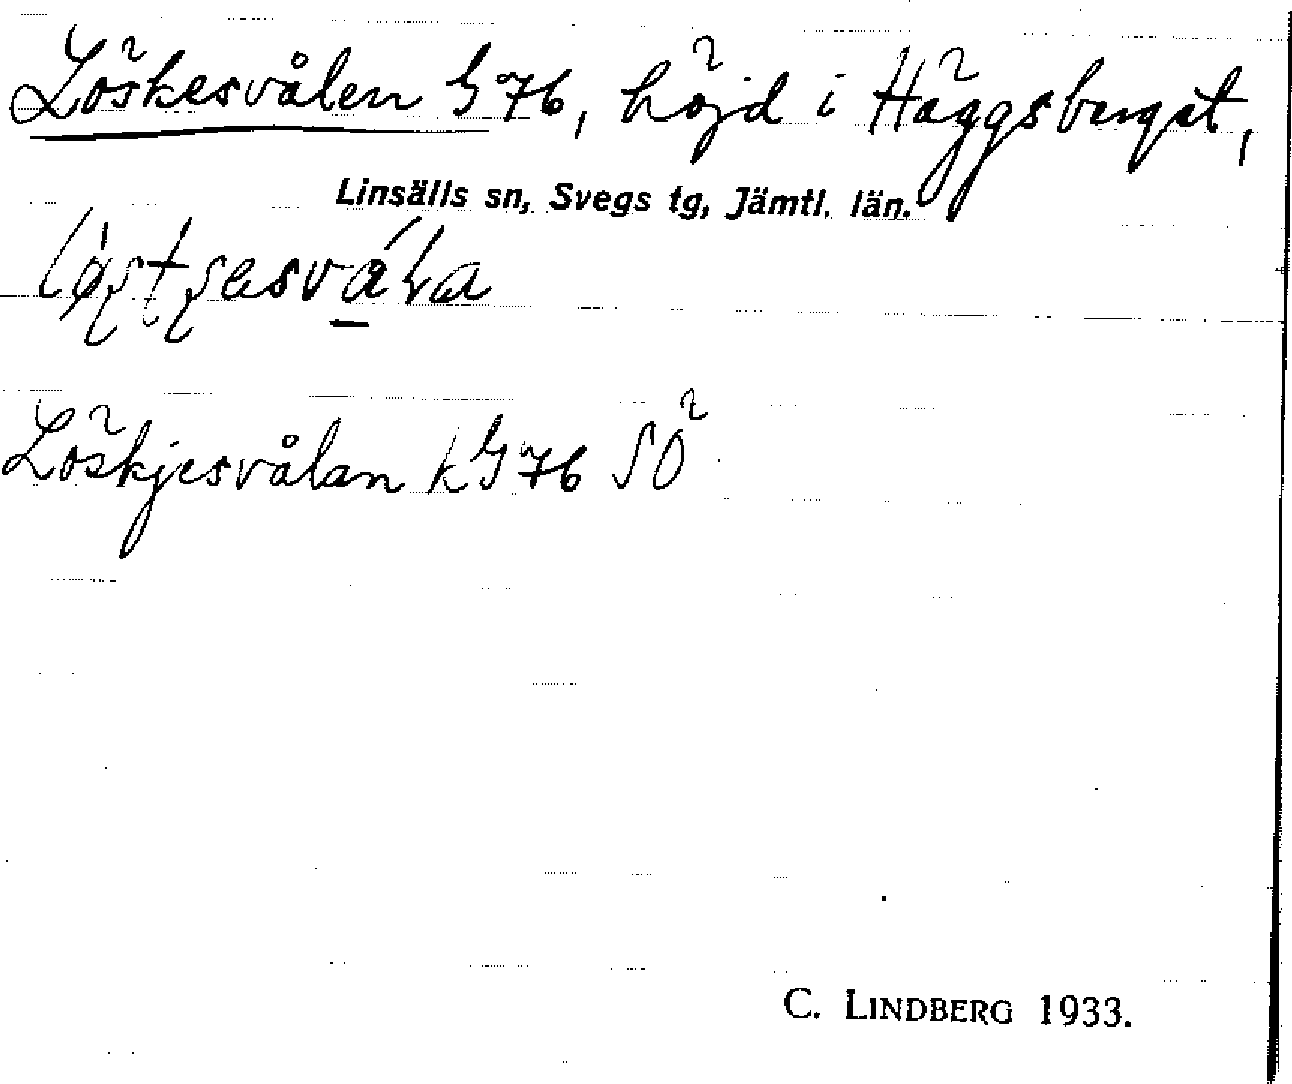 Löskesvålen G 76, höjd i Häggsberget,
Linsälls sn, Svegs tg, Jämtl. län.
Löskjesvålan k G 76 SÖ
C. LINDBERG 1933.